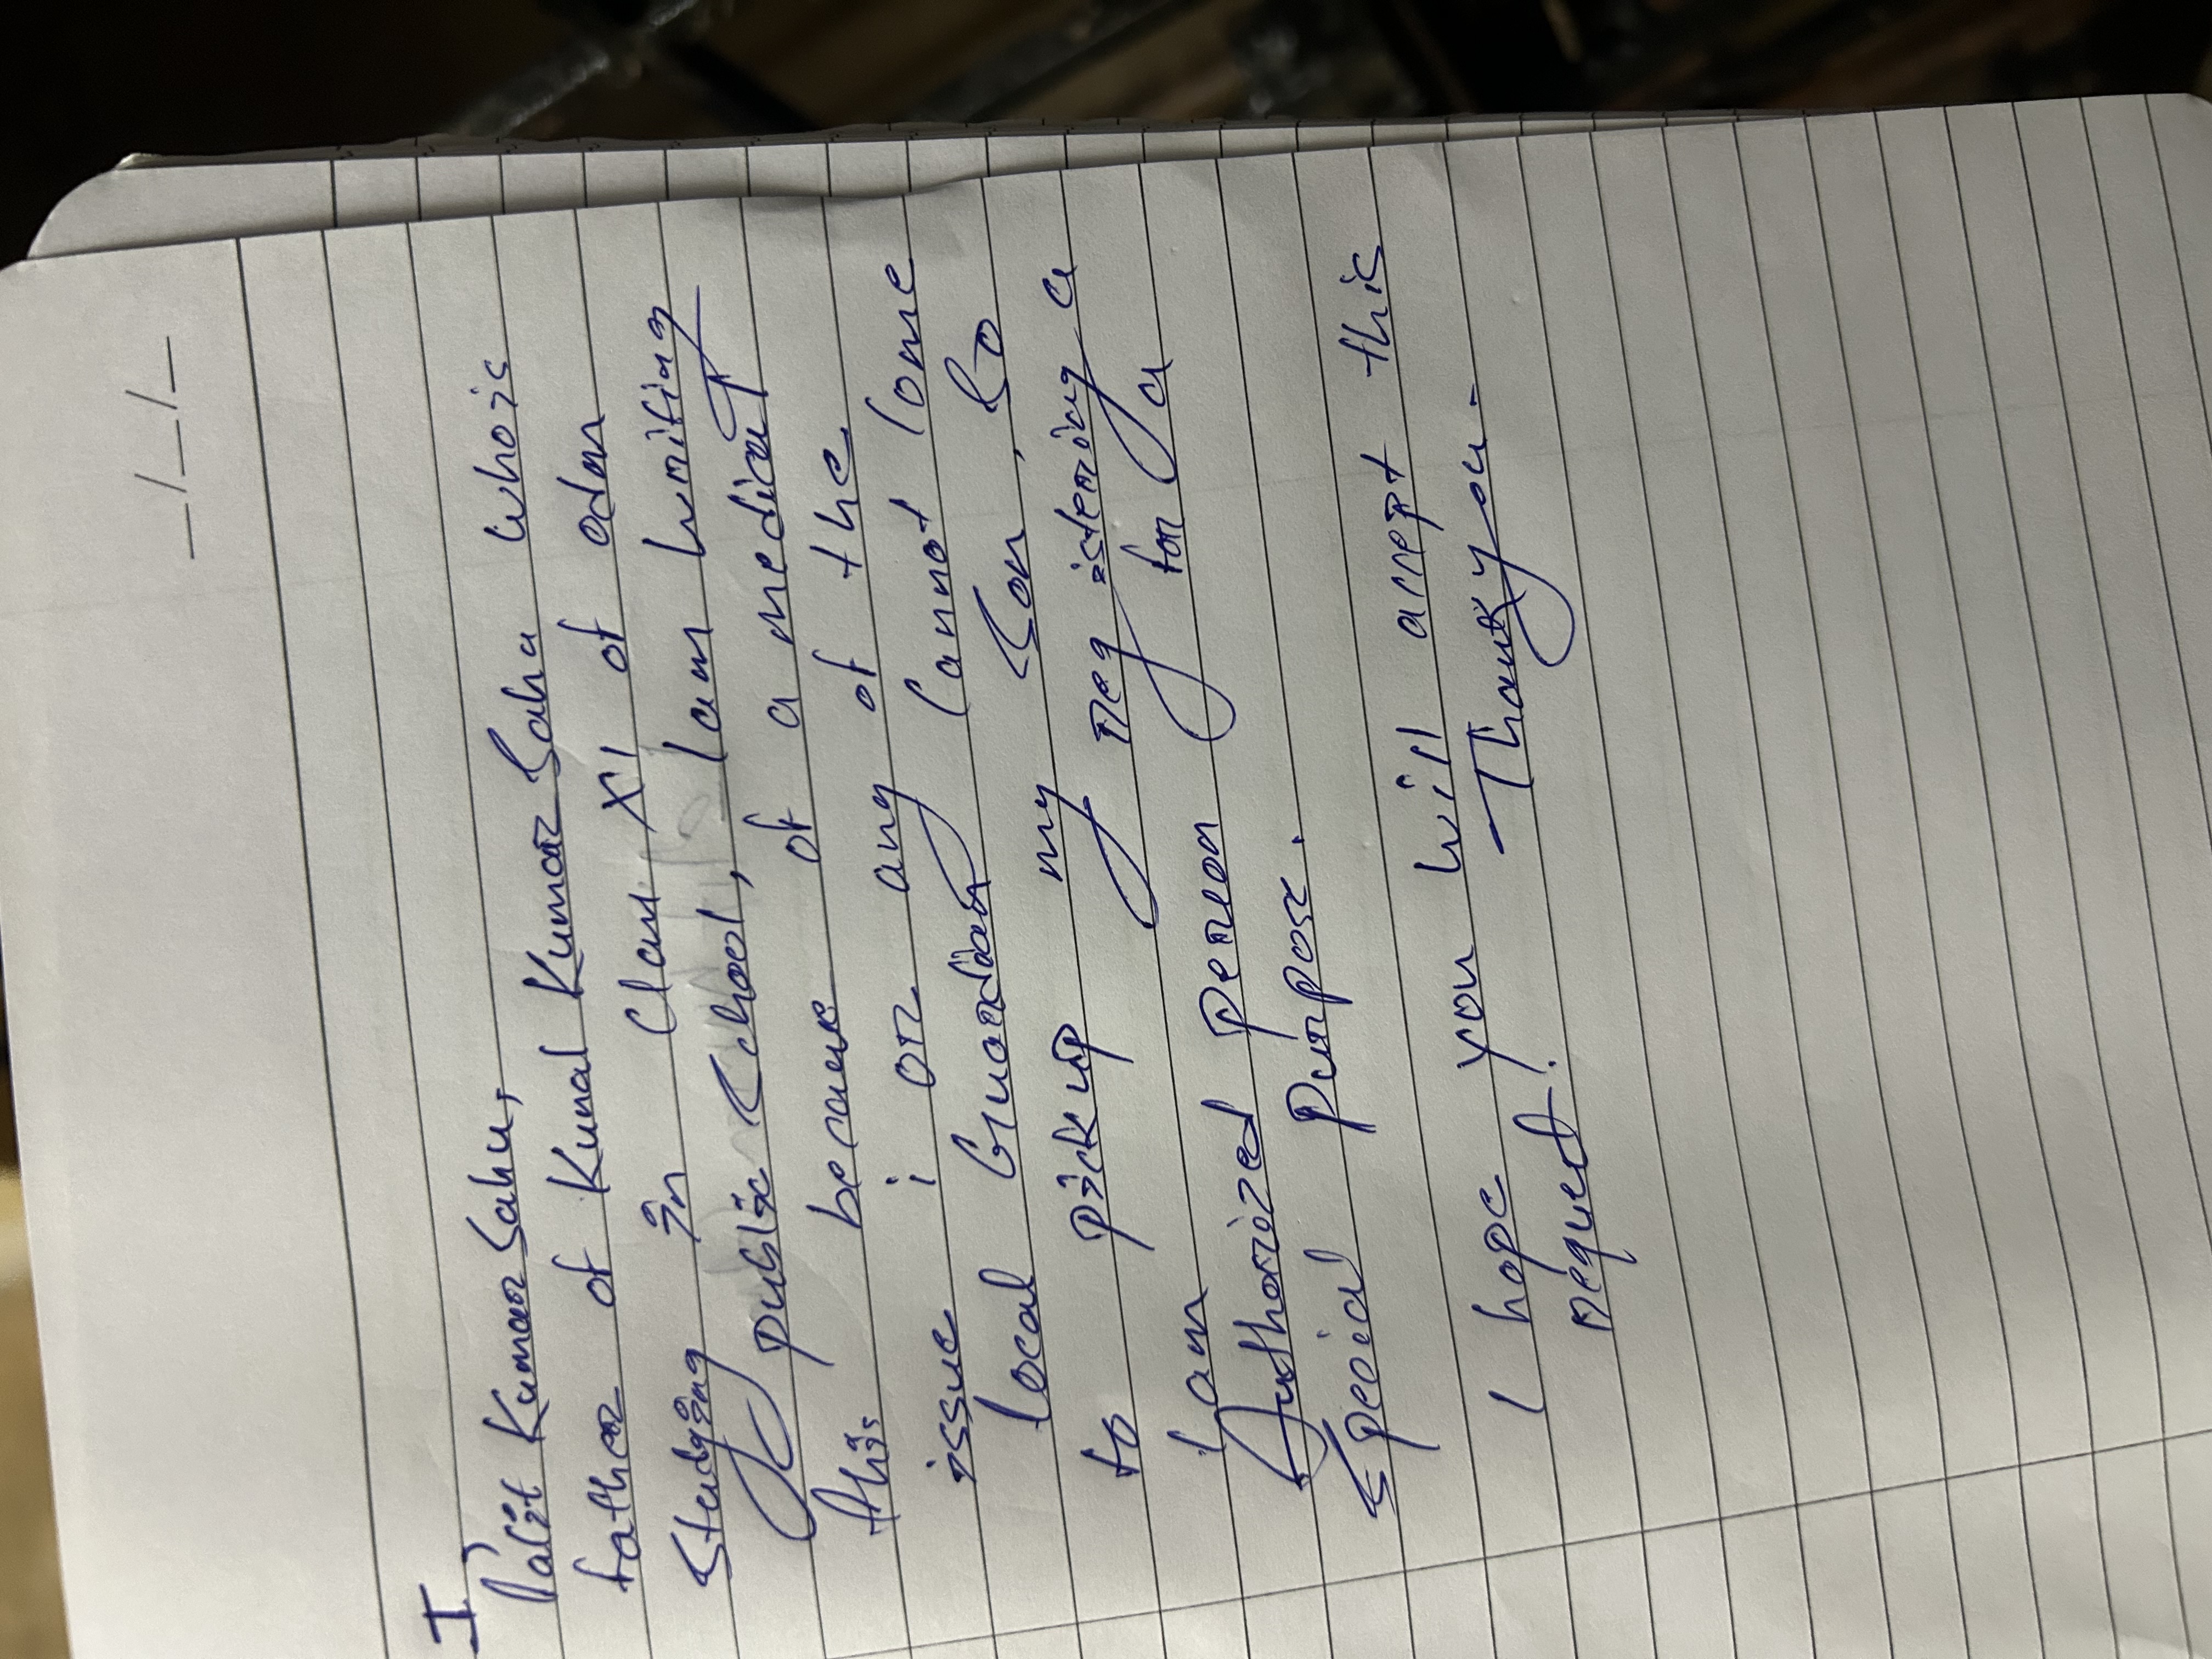 I
Lalit Kumar Sahu,
father of Kunal Kumar Sahu whois
Studying in Class XI of odm
public School, I am writing
this because of a medical
issue i or any of the
local Guardian Cannot Come
to pickup my Son, So
I am registering a
Authorized person for a
Special purpose.
I hope you will accept this
request.
Thank you.